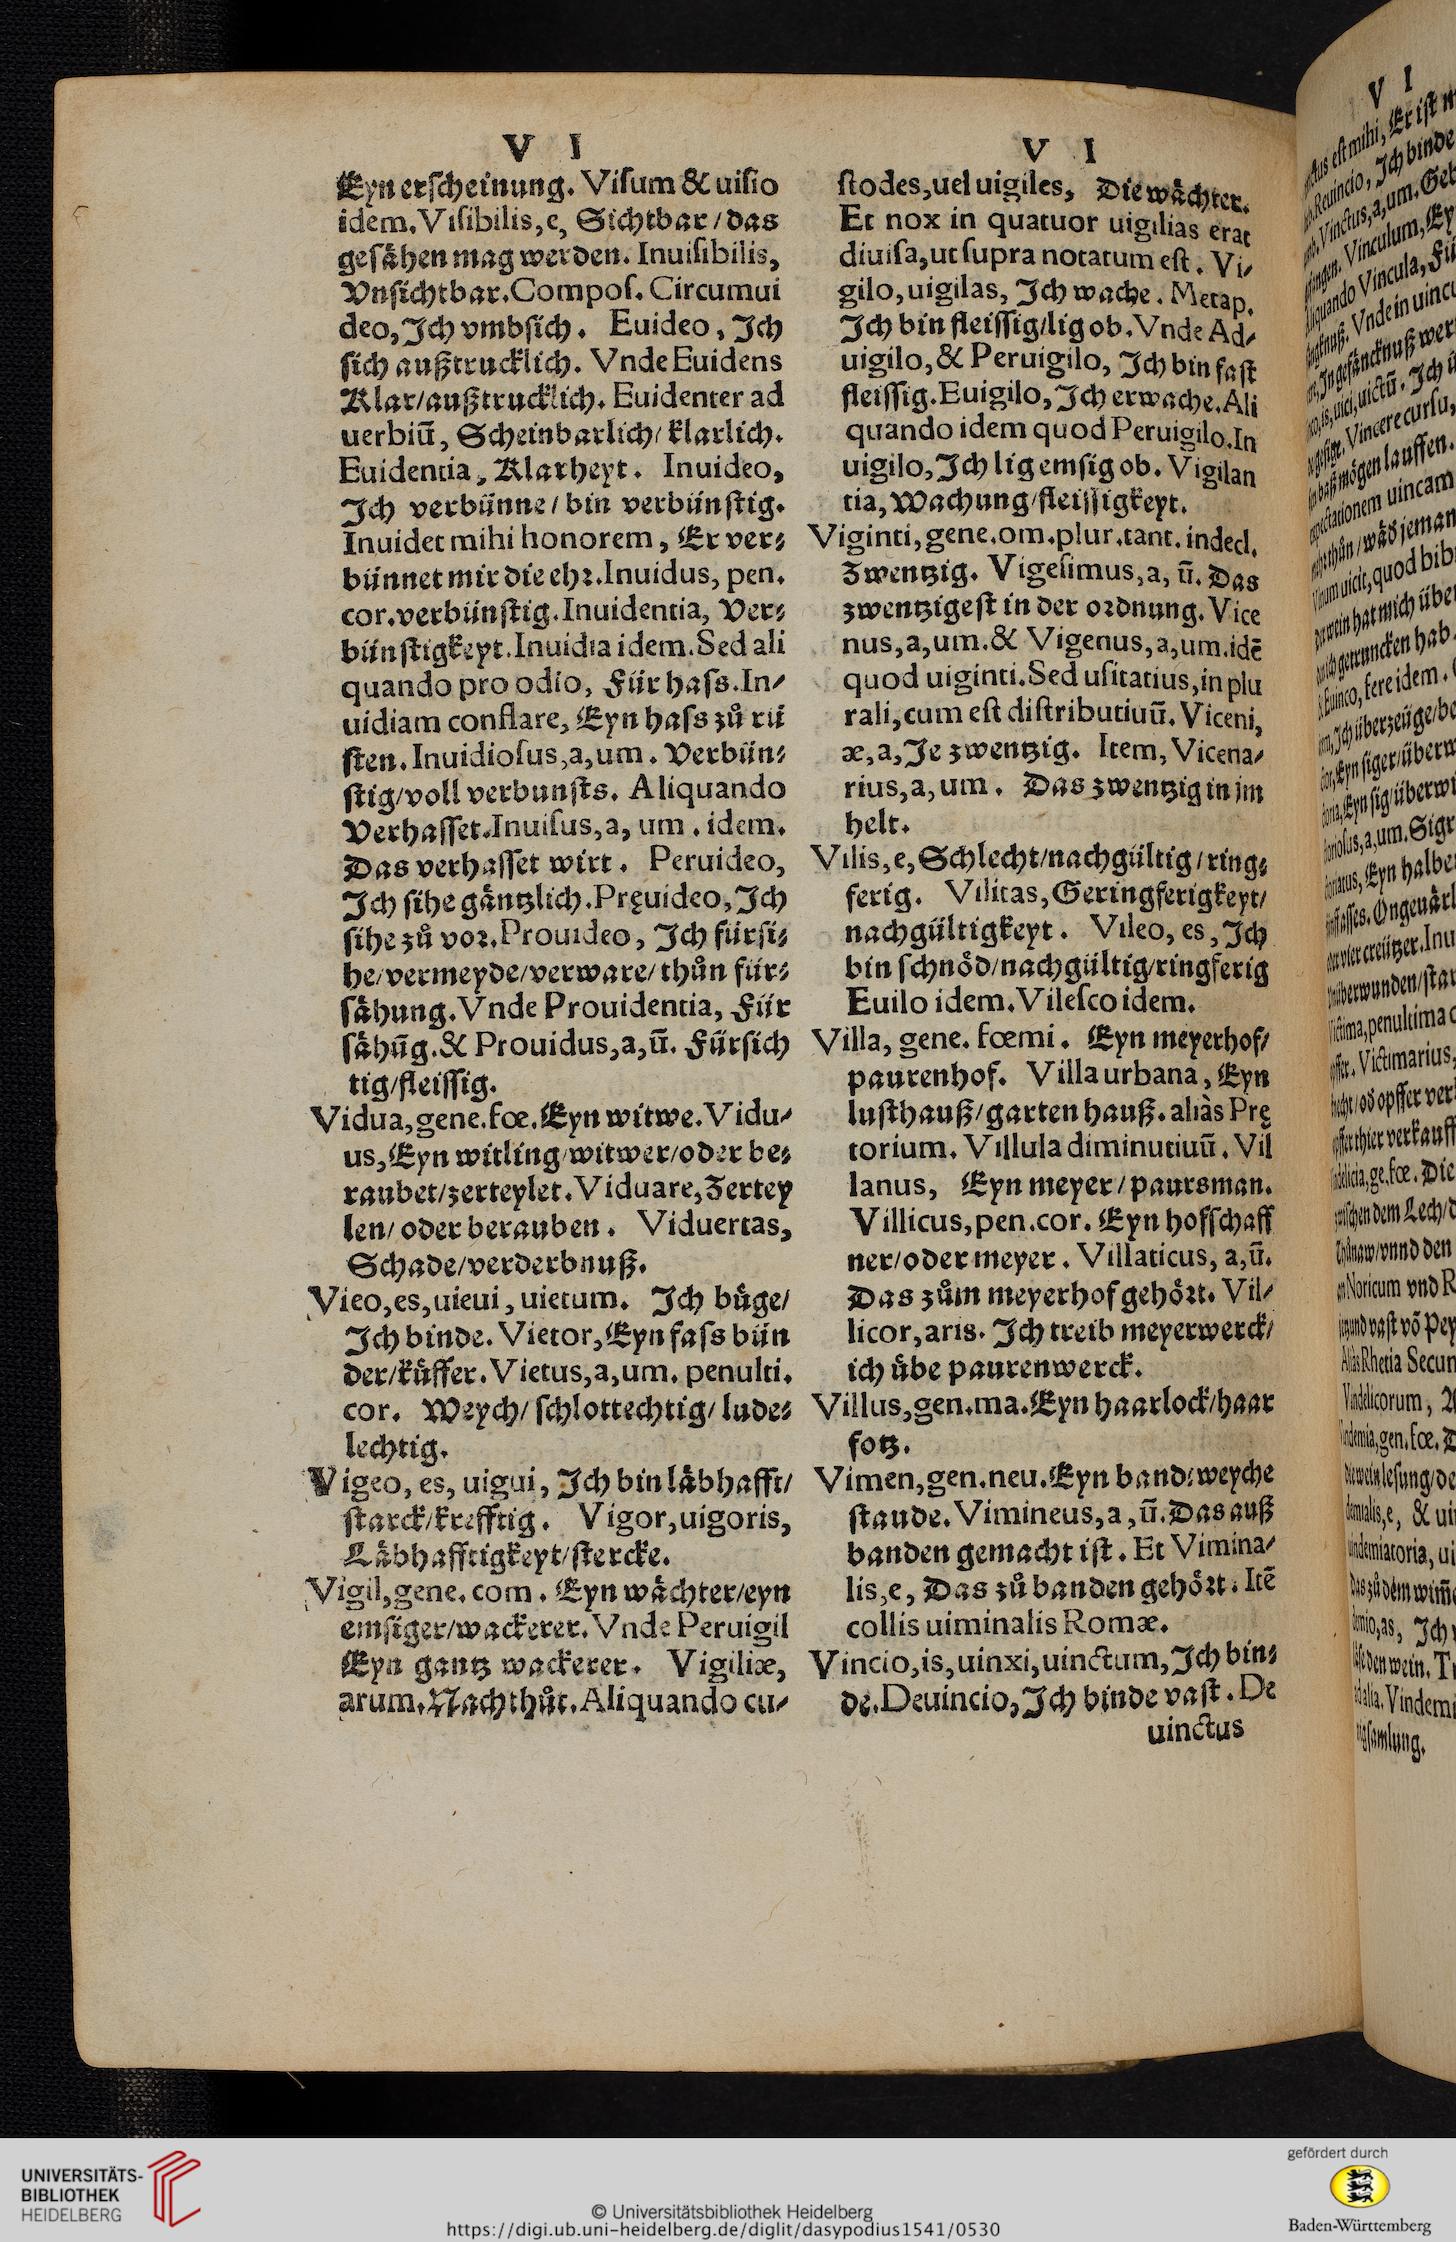 V I
Eyn erscheinung. Visum & uisio
idem. Visibilis, e, Sichtbar / das
gesåhen mag werden. Inuisibilis,
Vnsichtbar. Compos. Circumui
deo, Ich vmbsich. Euideo, Ich
sich außtrucklich. Vnde Euidens
Klar/außtrucklich. Euidenter ad
uerbiũ, Scheinbarlich/ klarlich.
Euidentia, Klarheyt. Inuideo,
Ich verbünne / bin verbünstig.
Inuidet mihi honorem, Er ver⸗
bünnet mir die ehr. Inuidus, pen.
cor. verbünstig. Inuidentia, Ver⸗
bünstigkeyt. Inuidia idem. Sed ali
quando pro odio, Für hass. In-
uidiam conflare, Eyn hass zů rü
sten. Inuidiosus, a, um. Verbün⸗
stig/voll verbunsts. Aliquando
Verhasset. Inuisus, a, um. idem.
Das verhasset wirt. Peruideo,
Ich sihe gåntzlich. Pręuideo, Ich
sihe zů vor. Prouideo, Ich fürsi⸗
he/vermeyde/verware/ thůn für⸗
såhung. Vnde Prouidentia, Für
såhũg. & Prouidus, a, ũ. Fürsich
tig/fleissig.
Vidua, gene. fœ. Eyn witwe. Vidu-
us, Eyn witling/witwer/oder be⸗
raubet/zerteylet. Viduare, Zertey
len/ oder berauben. Viduertas,
Schade/verderbnuß.
Vieo, es, uieui, uietum. Ich bůge/
Ich binde. Vietor, Eyn fass bün
der/kůffer. Vietus, a, um. penulti.
cor. Weych/ schlottechtig/ lude⸗
lechtig.
Vigeo, es, uigui, Ich bin låbhafft/
starck/krefftig. Vigor, uigoris,
Låbhafftigkeyt/stercke.
Vigil, gene. com. Eyn wåchter/eyn
emsiger/wackerer. Vnde Peruigil
Eyn gantz wackerer. Vigiliæ,
arum. Nachthůt. Aliquando cu-
V I
stodes, uel uigiles, Die wåchter.
Et nox in quatuor uigilias erat
diuisa, ut supra notatum est. Vi-
gilo, uigilas, Ich wache. Metap.
Ich bin fleissig/lig ob. Vnde Ad-
uigilo, & Peruigilo, Ich bin fast
fleissig. Euigilo, Ich erwache. Ali
quando idem quod Peruigilo. In
uigilo, Ich lig emsig ob. Vigilan
tia, Wachung/fleissigkeyt.
Viginti, gene. om. plur. tant. indecl.
Zwentzig. Vigesimus, a, ũ. Das
zwentzigest in der ordnung. Vice
nus, a, um. & Vigenus, a, um. idẽ
quod uiginti. Sed usitatius, in plu
rali, cum est distributiuũ. Viceni,
æ, a, Je zwentzig. Item, Vicena-
rius, a, um. Das zwentzig in jm
helt.
Vilis, e, Schlecht/nachgültig / ring⸗
ferig. Vilitas, Geringferigkeyt/
nachgültigkeyt. Vileo, es, Ich
bin schnöd/nachgültig/ringferig
Euilo idem. Vilesco idem.
Villa, gene. fœmi. Eyn meyerhof/
paurenhof. Villa urbana, Eyn
lusthauß/ garten hauß. aliàs Prę
torium. Villula diminutiuũ. Vil
lanus, Eyn meyer / paursman.
Villicus, pen. cor. Eyn hofschaff
ner/oder meyer. Villaticus, a, ũ.
Das zům meyerhof gehört. Vil-
licor, aris. Ich treib meyerwerck/
ich übe paurenwerck.
Villus, gen. ma. Eyn haarlock/haar
fotz.
Vimen, gen. neu. Eyn band/weyche
staude. Vimineus, a, ũ. Das auß
banden gemacht ist. Et Vimina-
lis, e, Das zů banden gehört. Itẽ
collis uiminalis Romæ.
Vincio, is, uinxi, uinctum, Ich bin⸗
de. Deuincio, Ich binde vast. De
uinctus
V I
UNIVERSITÄTS-
BIBLIOTHEK
HEIDELBERG
© Universitätsbibliothek Heidelberg
https://digi.ub.uni-heidelberg.de/diglit/dasypodius1541/0530
gefördert durch
Baden-Württemberg